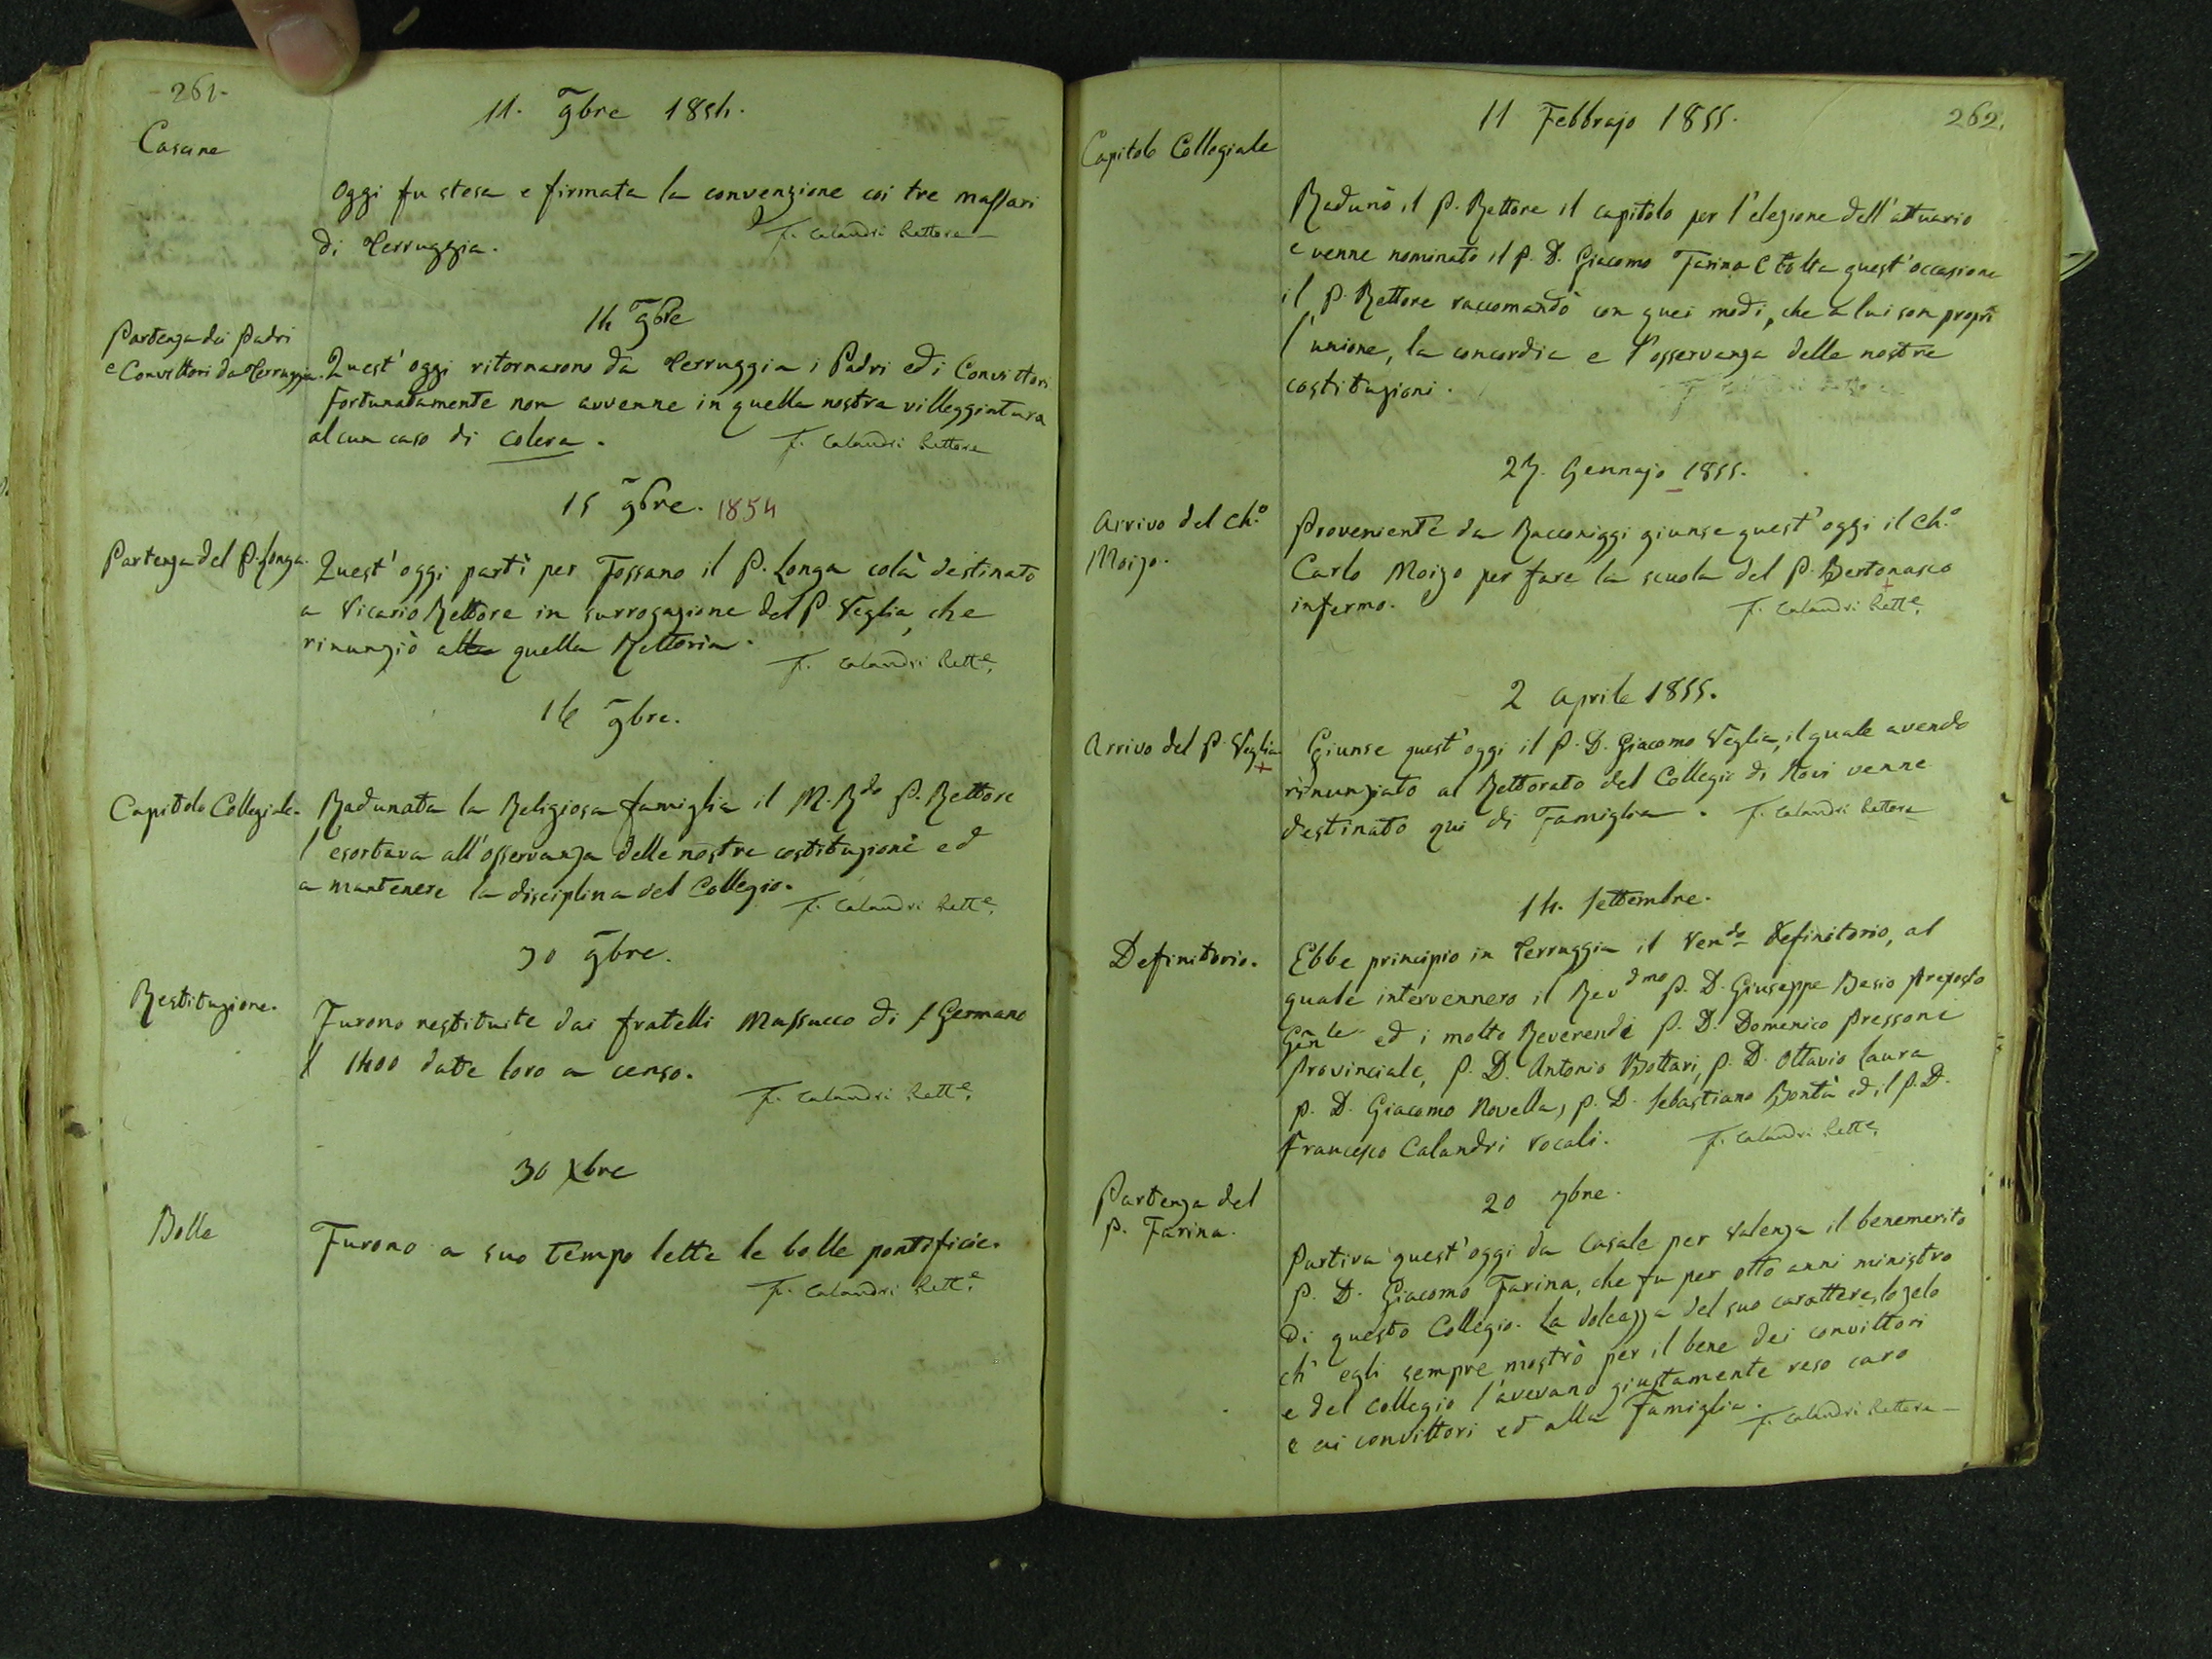 261.
11. 9bre 1854.
Cascine
Oggi fu stesa e firmata la convenzione coi tre massari
di Terruggia.
F. Calandri Rettore
14 9bre
Partenza dei Padri
e Convittori da Terruggia.
Quest'oggi ritornarono da Terruggia i Padri ed i Convittori
fortunatamente non avvenne in quella nostra villeggiatura
alcun caso di colera.
F. Calandri Rettore
15 9bre. 1854
Partenza del P. Longa.
Quest'oggi partì per Fossano il P. Longa colà destinato
a Vicario Rettore in surrogazione del P. Veglia, che
rinunziò alla quella Rettoria.
F. Calandri Rett.e
16 9bre.
Capitolo Collegiale.
Radunata la Religiosa famiglia il M. R.do P. Rettore
l'esortava all'osservanza delle nostre costituzioni ed
a mantenere la disciplina del Collegio.
F. Calandri Rett.e
30 9bre.
Restituzione.
Furono restituite dai fratelli Massucco di S Germano
£ 1400 date loro a censo.
F. Calandri Rett.e
30 Xbre
Bolle
Furono a suo tempo lette le bolle pontificie.
F. Calandri Rett.e
262.
11 Febbrajo 1855.
Capitolo Collegiale
Radunò il P. Rettore il capitolo per l'elezione dell'attuario
e venne nominato il P. D. Giacomo Farina E tolta quest'occasione
il P. Rettore raccomandò con quei modi, che a lui son propri
l'unione, la concordia e l'osservanza delle nostre
costituzioni.
27. Gennajo 1855.
Arrivo del Ch.o
Moizo.
Proveniente da Racconiggi giunse quest'oggi il Ch.o
Carlo Moizo per fare la scuola del P. Bertonasco
infermo.
F. Calandri Rett.e
2 Aprile 1855.
Arrivo del P. Veglia
Giunse quest'oggi il P. D. Giacomo Veglia, il quale avendo
rinunziato al Rettorato del Collegio di Novi venne
destinato qui di Famiglia.
F. Calandri Rettore
14. Settembre.
Definitorio.
Ebbe principio in Terruggia il Ven.do Definitorio, al
quale intervennero il Rev.dmo P. D. Giuseppe Besio Preposto
Gen.le ed i molto Reverendi P. D. Domenico Pressoni
Provinciale, P. D. Antonio Bottari, P. D. Ottavio Laura
P. D. Giacomo Novella, P. D. Sebastiano Bontà ed il P. D.
Francesco Calandri Vocali.
F. Calandri Rett.e
20 7bre.
Partenza del
P. Farina.
Partiva quest'oggi da Casale per Valenza il benemerito
P. D. Giacomo Farina, che fu per otto anni ministro
di questo Collegio. La dolcezza del suo carattere, lo zelo
ch'egli sempre mostrò per il bene dei convittori
e del Collegio l'avevano giustamente reso caro
e ai convittori ed alla Famiglia.
F. Calandri Rettore